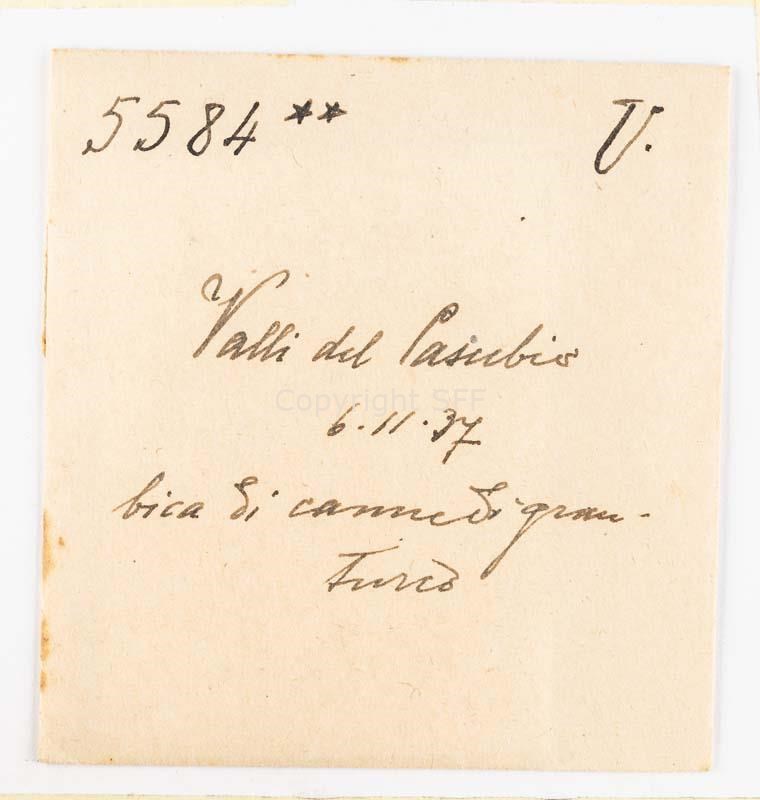 5584 ** V.
Valli del Pasubio
Copyright SFF
6.11.37
bica di canne di gran-
turco